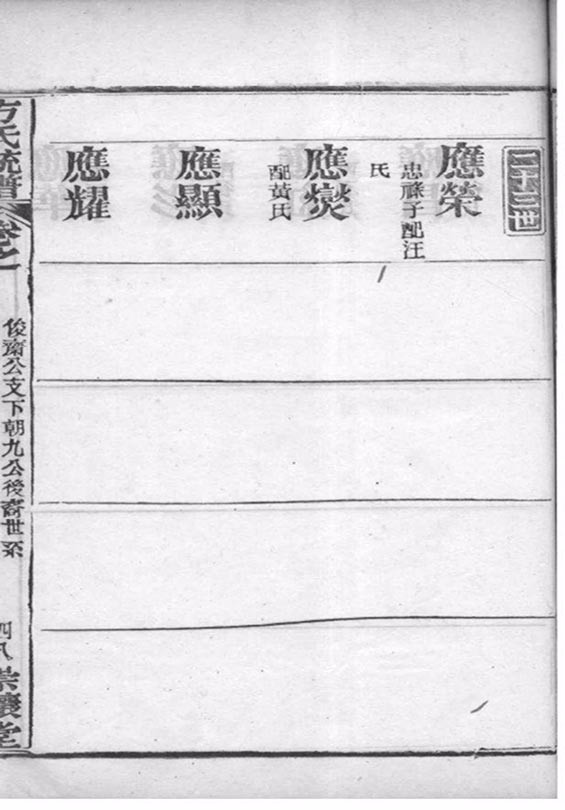 二十二世
應榮
忠祿子配汪
氏
應爕
配黃氏
應顯
應耀
方氏統譜
卷之一
俊齋公支下朝九公後裔世系
四八
崇讓堂